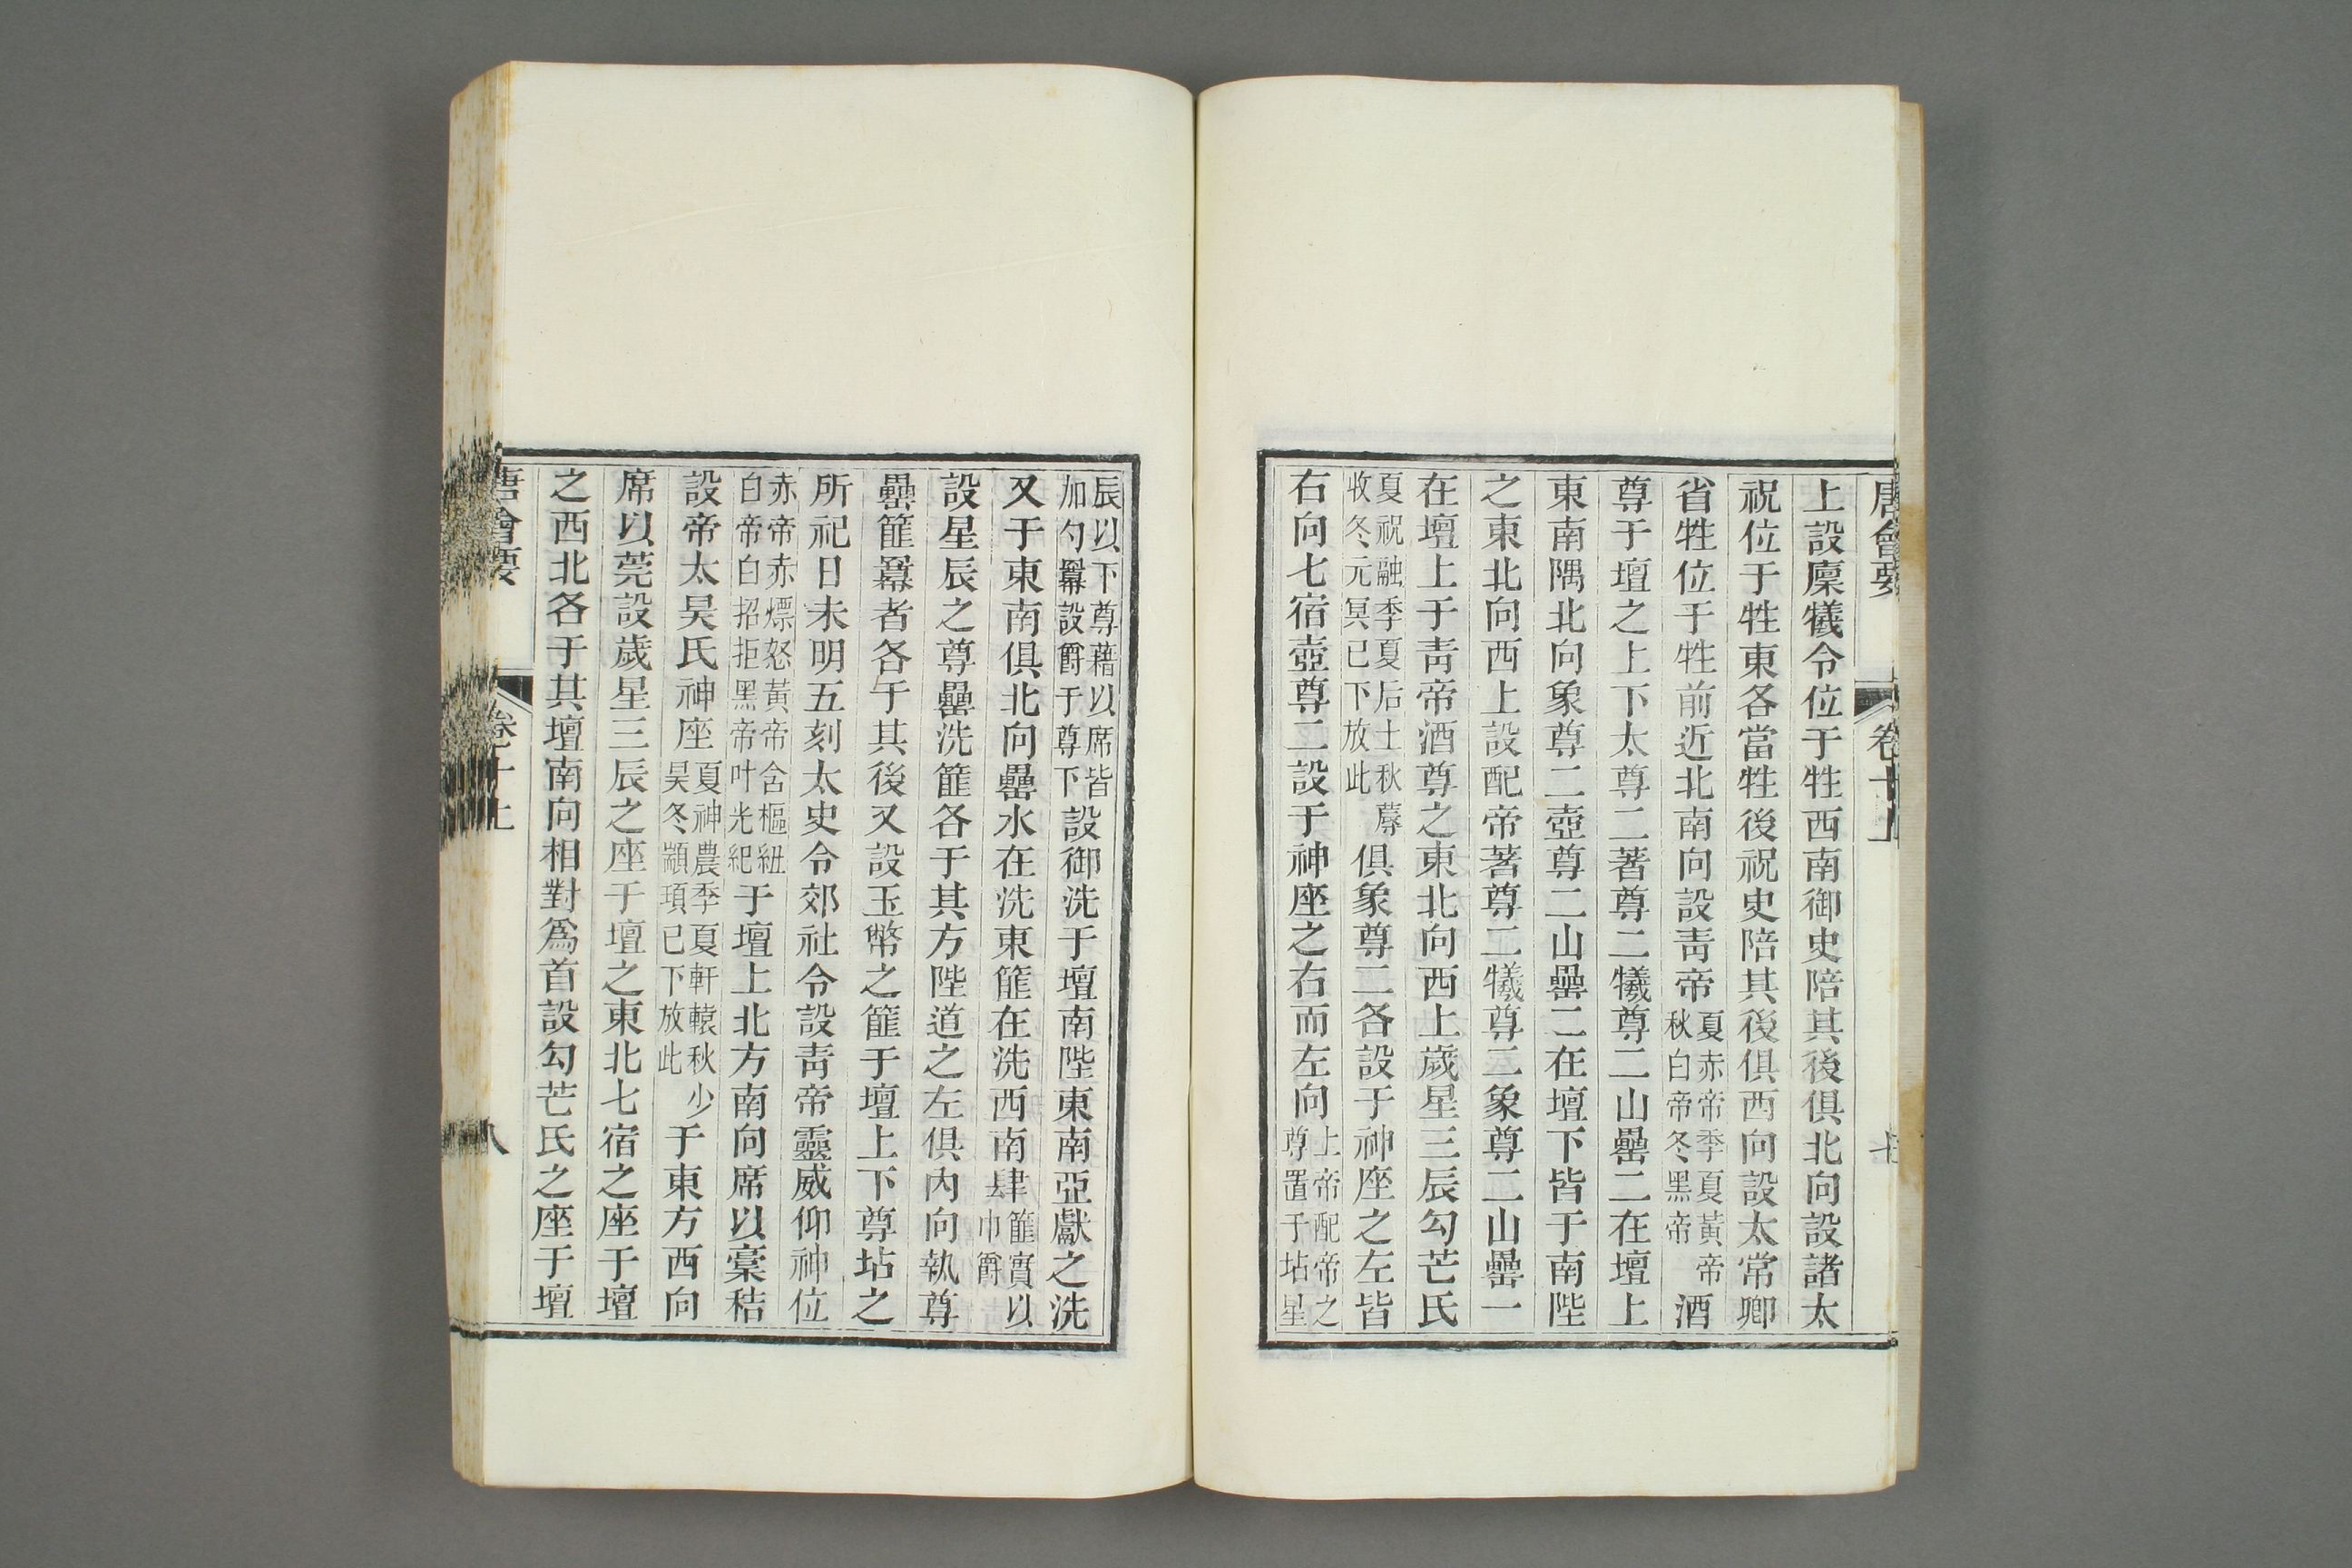 唐會要 卷十上 七
上設廩犧令位于牲西南御史陪其後俱北向設諸太
祝位于牲東各當牲後祝史陪其後俱西向設太常卿
省牲位于牲前近北南向設靑帝夏赤帝季夏黃帝秋白帝冬黑帝酒
尊于壇之上下太尊二著尊二犧尊二山罍二在壇上
東南隅北向象尊二壺尊二山罍二在壇下皆于南陛
之東北向西上設配帝著尊二犧尊二象尊二山罍一
在壇上于靑帝酒尊之東北向西上歲星三辰勾芒氏
夏祝融季夏后土秋蓐收冬元冥已下放此俱象尊二各設于神座之左皆
右向七宿壺尊二設于神座之右而左向上帝配帝之尊置于坫星
辰以下尊藉以席皆加勺羃設爵于尊下設御洗于壇南陛東南亞獻之洗
又于東南俱北向罍水在洗東篚在洗西南肆篚實以巾爵
設星辰之尊罍洗篚各于其方陛道之左俱內向執尊
罍篚羃者各于其後又設玉幣之篚于壇上下尊坫之
所祀日未明五刻太史令郊社令設靑帝靈威仰神位
赤帝赤熛怒黃帝含樞紐白帝白招拒黑帝叶光紀于壇上北方南向席以藁秸
設帝太昊氏神座夏神農季夏軒轅秋少昊冬顓頊已下放此于東方西向
席以莞設歲星三辰之座于壇之東北七宿之座于壇
之西北各于其壇南向相對爲首設勾芒氏之座于壇
唐會要 卷十上 八